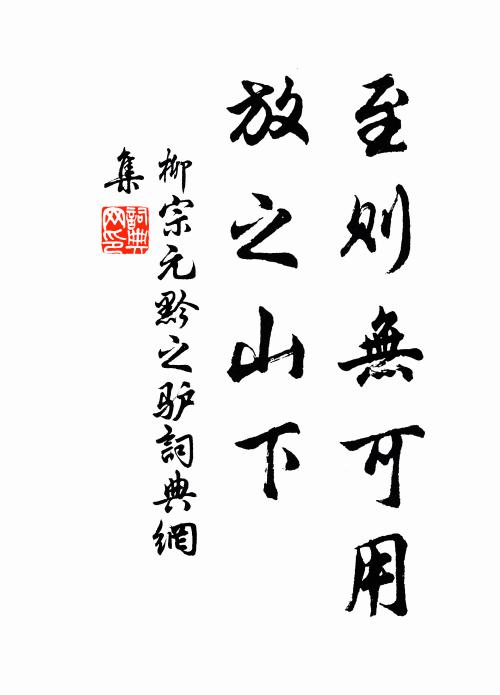 至则無可用
放之山下
柳宗元黔之驴詞典網
集
詞典
网印